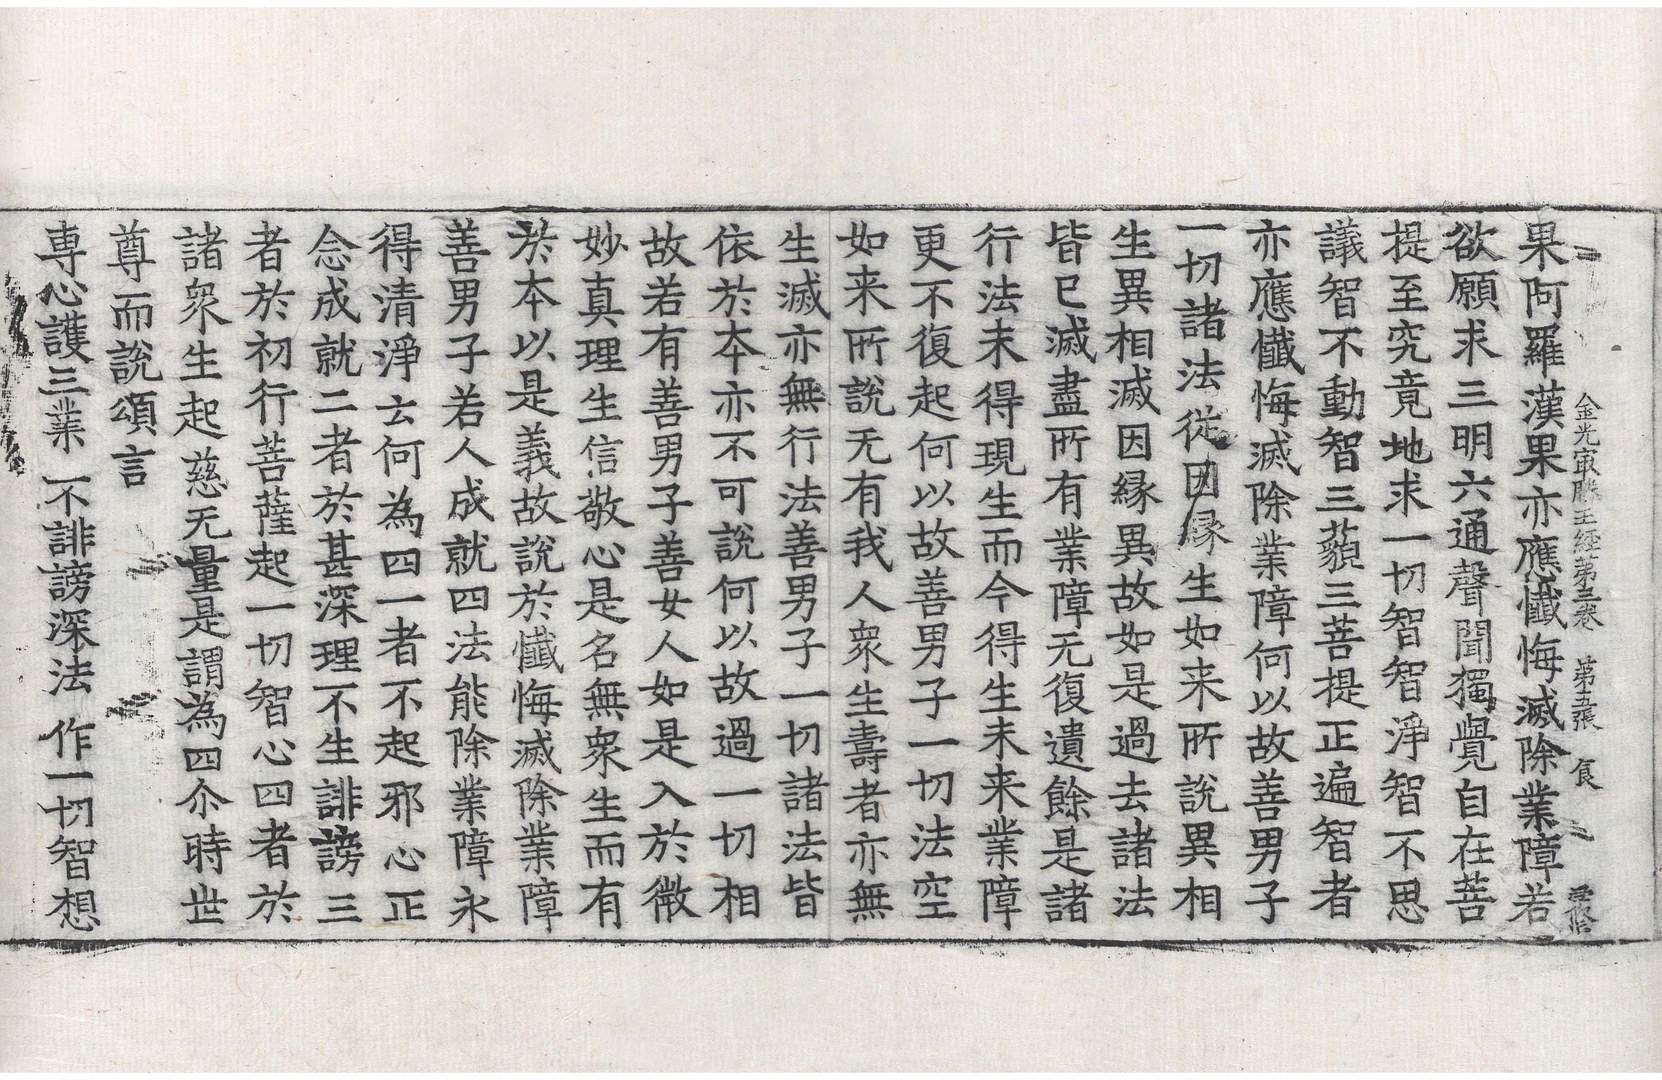 金光㝡勝王經第三卷　第五張　食
果阿羅漢果亦應懺悔滅除業障若
欲願求三明六通聲聞獨覺自在菩
提至究竟地求一切智智淨智不思
議智不動智三藐三菩提正遍智者
亦應懺悔滅除業障何以故善男子
一切諸法從因縁生如来所說異相
生異相滅因縁異故如是過去諸法
皆已滅盡所有業障无復遺餘是諸
行法未得現生而今得生未来業障
更不復起何以故善男子一切法空
如来所說无有我人衆生壽者亦無
生滅亦無行法善男子一切諸法皆
依於本亦不可說何以故過一切相
故若有善男子善女人如是入於微
妙真理生信敬心是名無衆生而有
於本以是義故說於懺悔滅除業障
善男子若人成就四法能除業障永
得清淨云何為四一者不起邪心正
念成就二者於甚深理不生誹謗三
者於初行菩薩起一切智心四者於
諸衆生起慈无量是謂為四尒時世
尊而說頌言
專心護三業　不誹謗深法　作一切智想